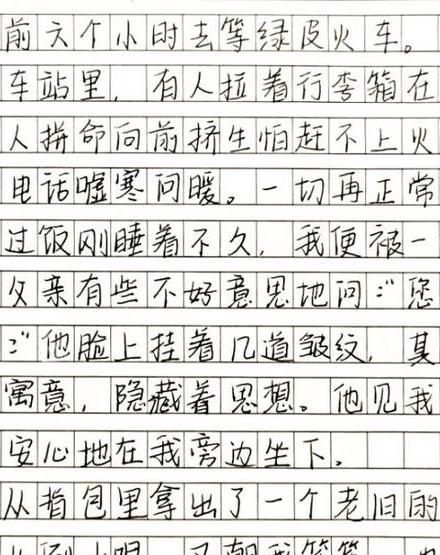 前六个小时去等绿皮火车。
车站里，有人拉着行李箱在
人拼命向前挤生怕赶不上火
电话嘘寒问暖。一切再正常
过饭刚睡着不久，我便被一
父亲有些不好意思地问："您
："他脸上挂着几道皱纹，其
寓意，隐藏着思想。他见我
安心地在我旁边坐下。
从背包里拿出了一个老旧的